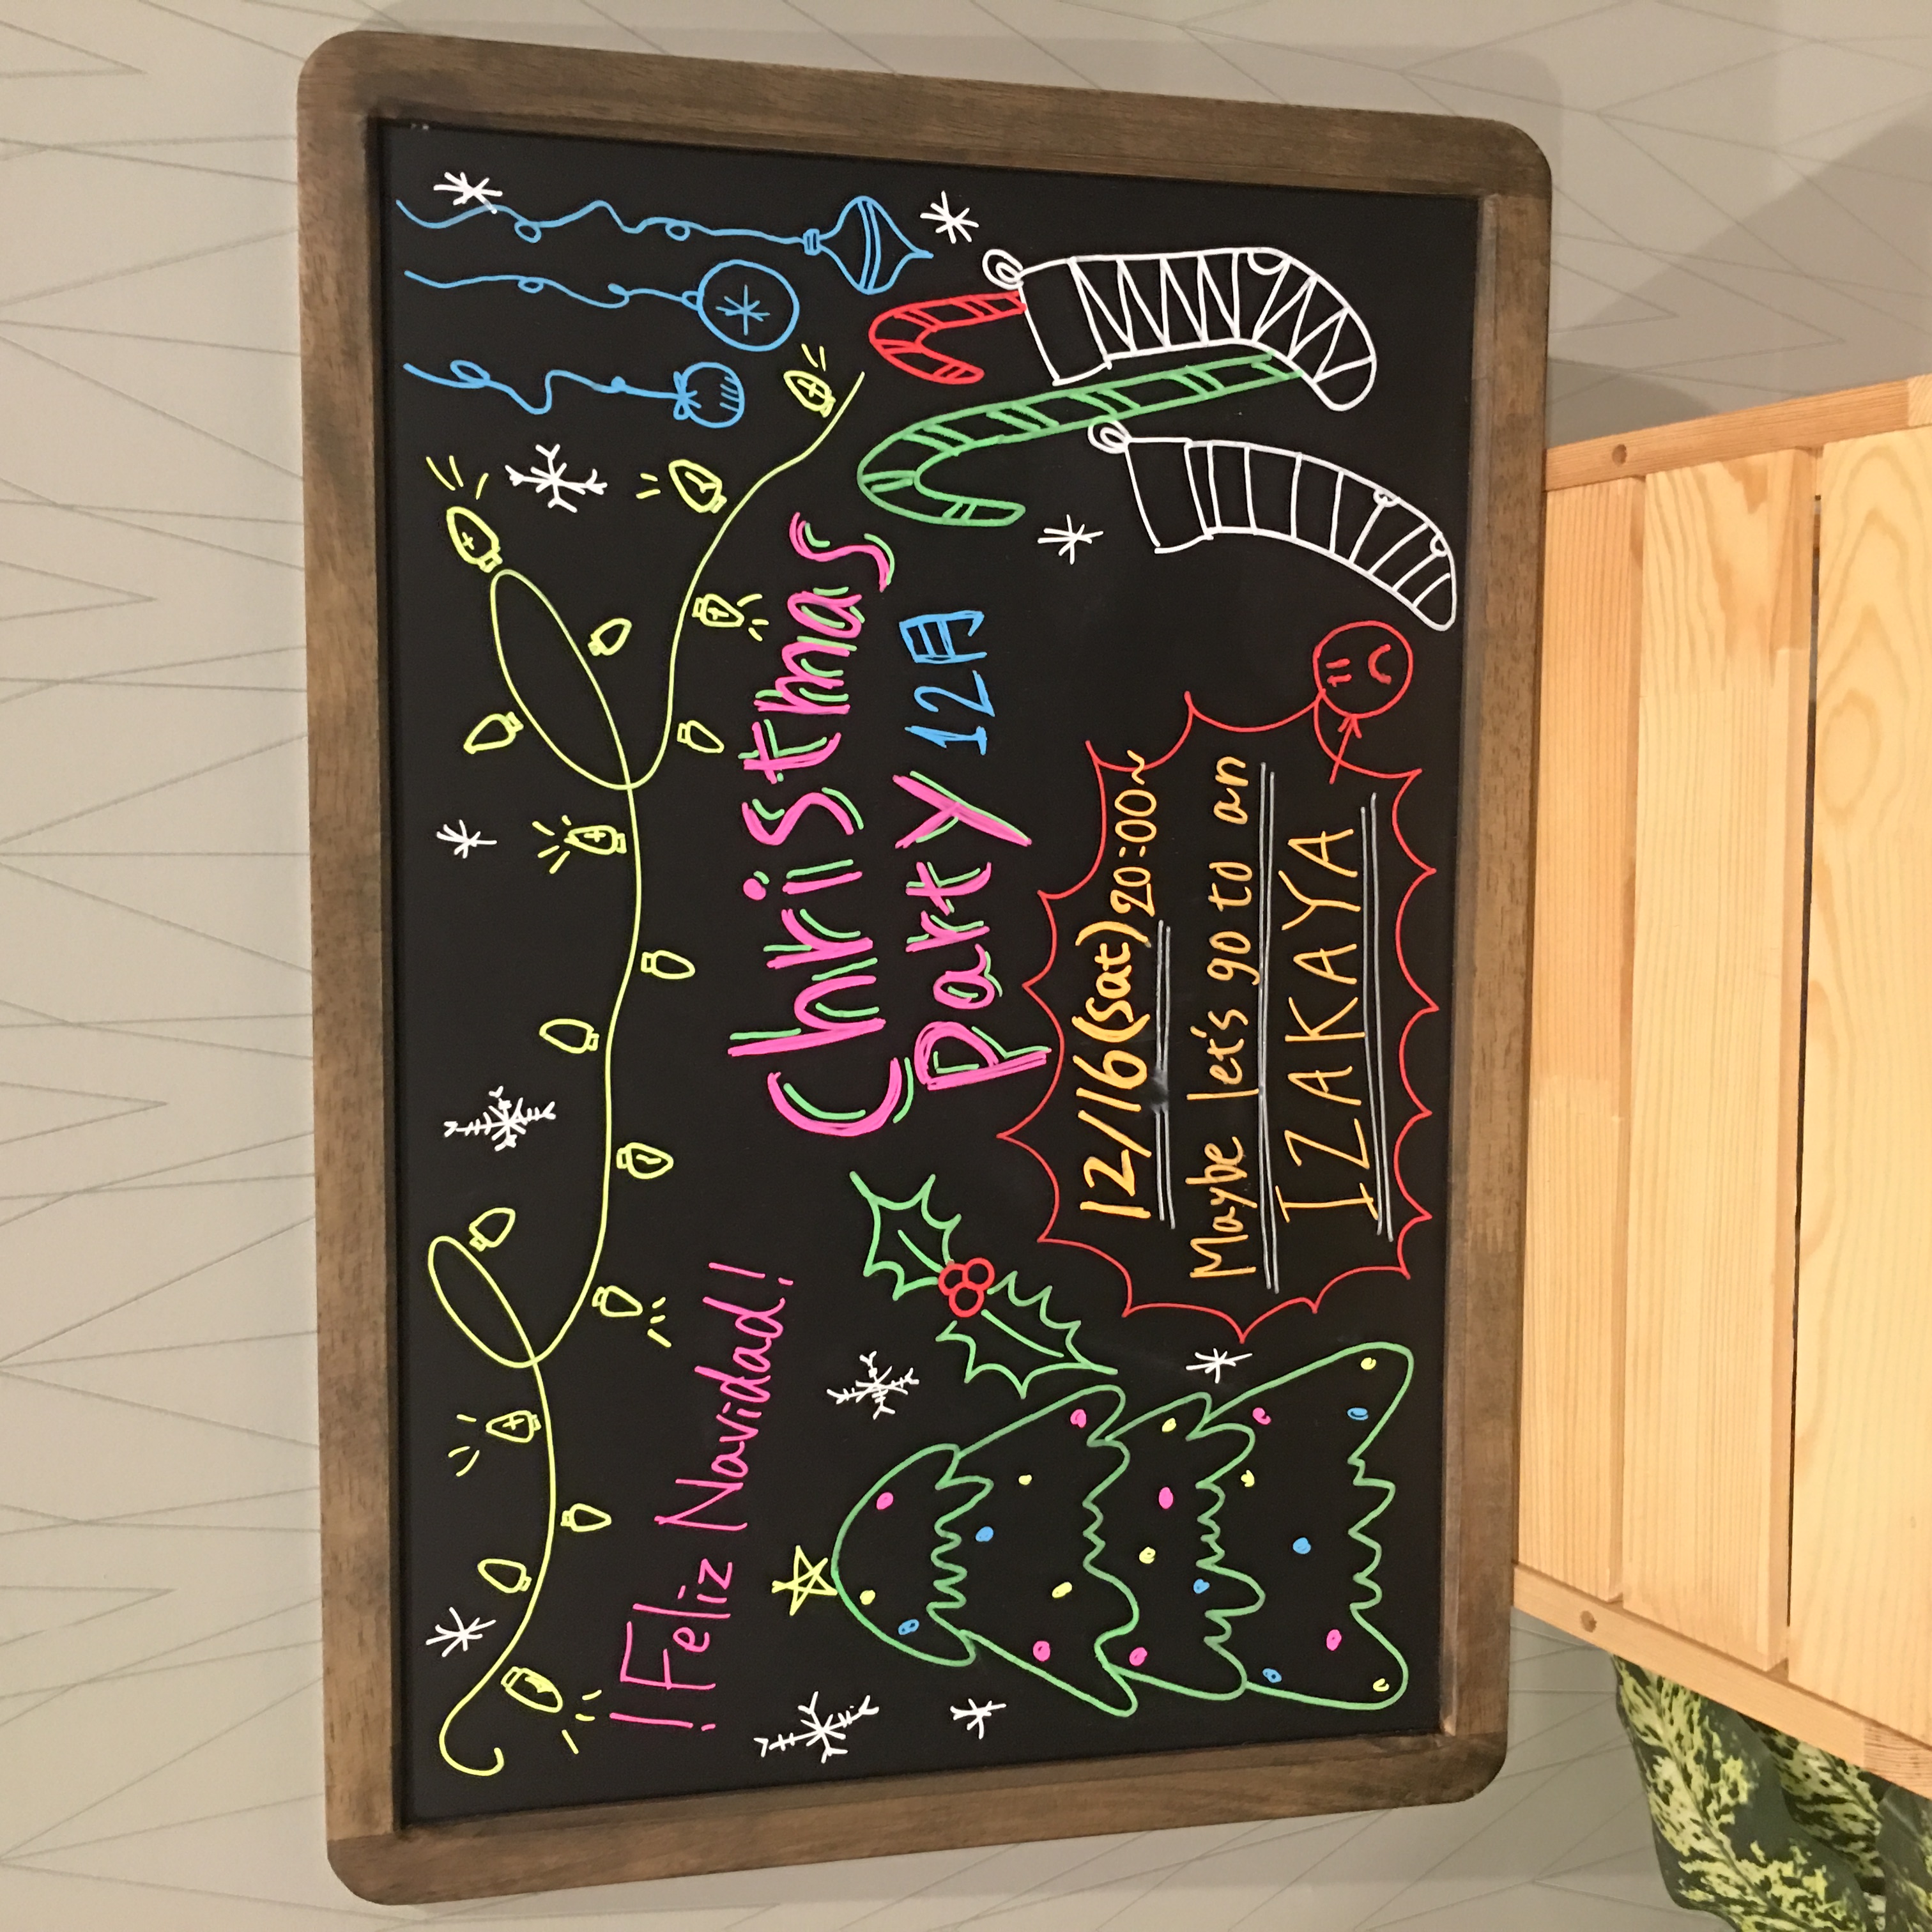 !Feliz Navidad!
Christmas
Party 12月
12/16(Sat) 20:00~
Maybe let's go to an
IZAKAYA